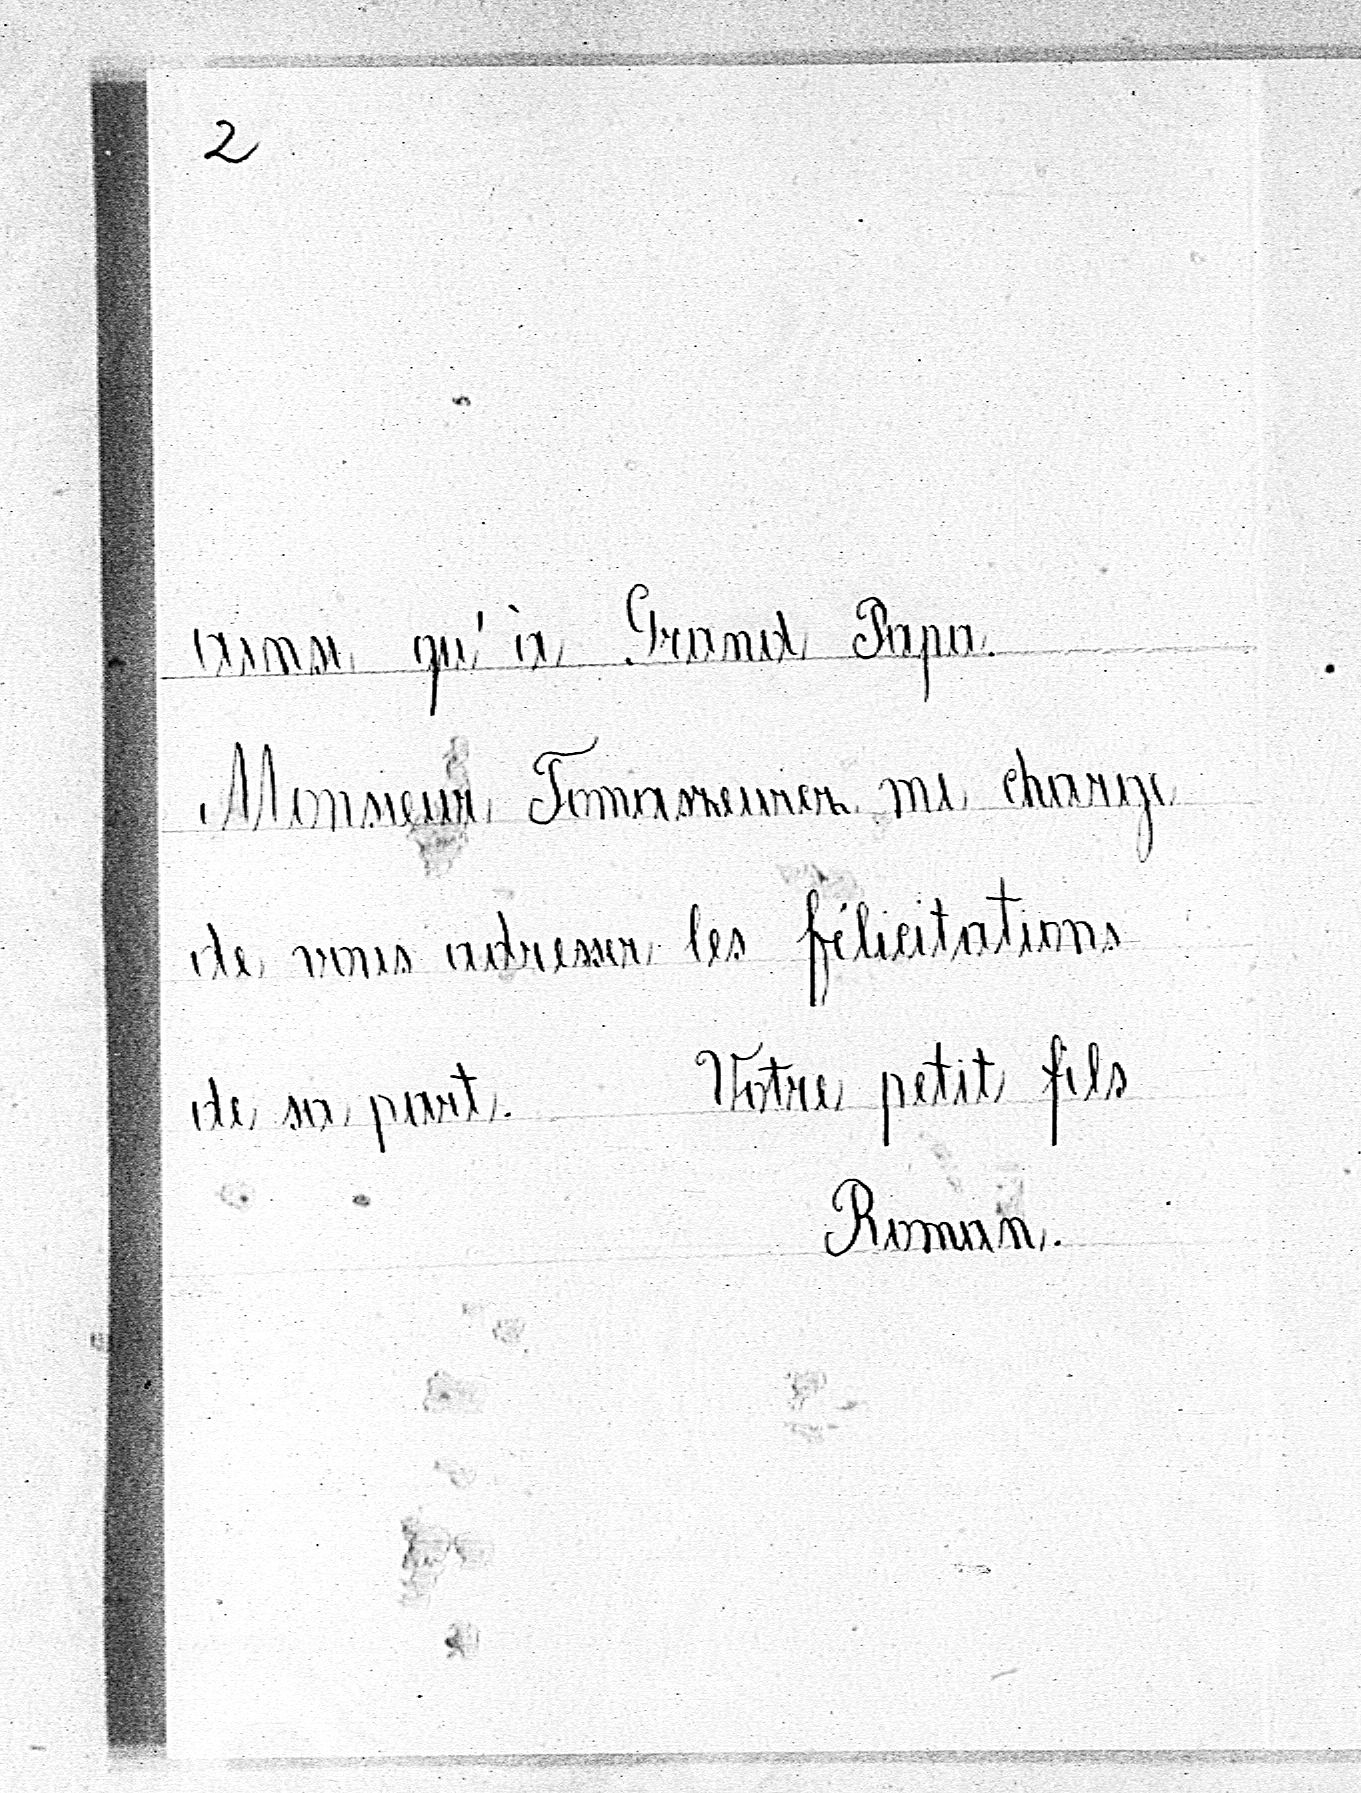 2
ainsi qu'à Grand Papa.
Monsieur me charge
de vous adresser les félicitations
de sa part. Votre petit fils
Roman.